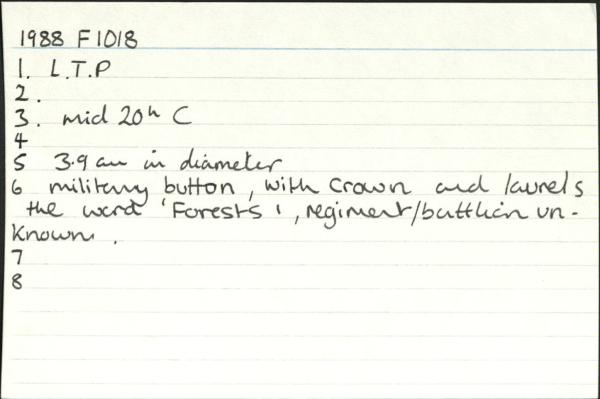 1988 F1018
1. L.T.P
2.
3. mid 20th C
4
5 3.9 cm in diameter
6 military button, with crown and laurels
the word 'Forests', regiment/battlion un-
known.
7
8